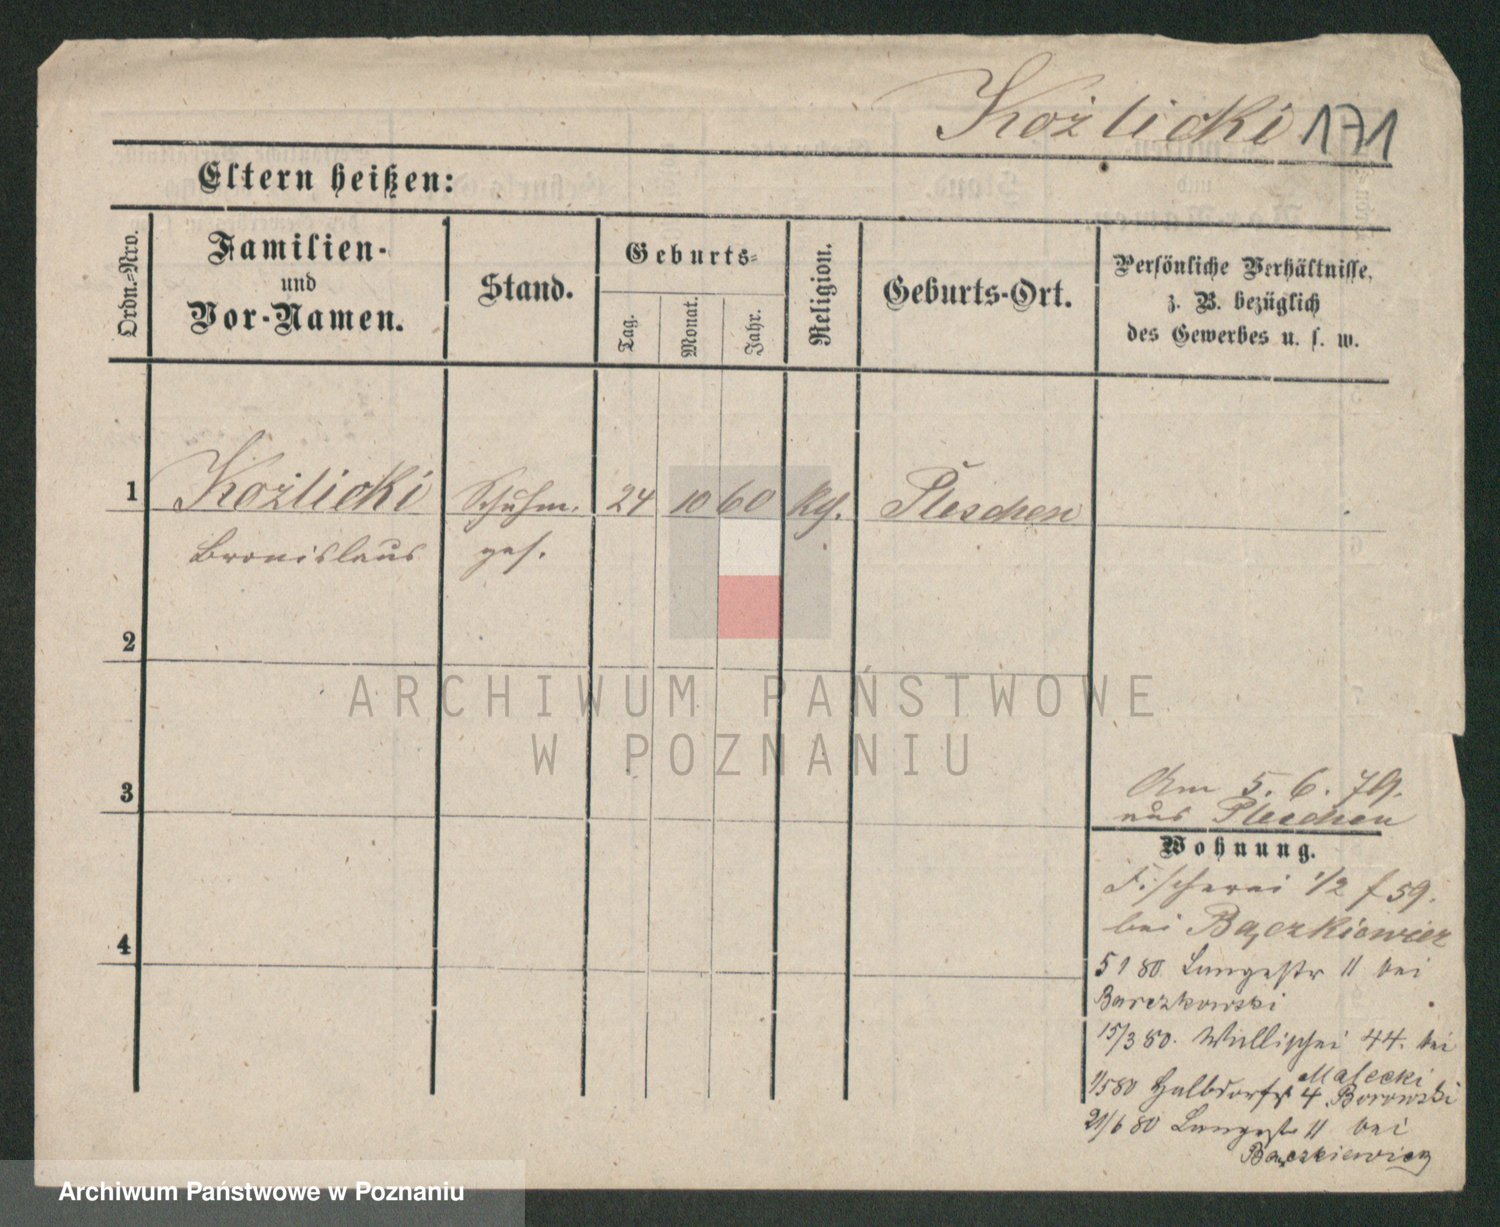 Kożlicki 171
Eltern heißen:
Ordn.-Nro.
Familien-
und
Vor-Namen.
Stand.
Geburts-
Tag.
Monat.
Jahr.
Religion.
Geburts-Ort.
Persönliche Verhältnisse,
z. B. bezüglich
des Gewerbes u. s. w.
1 Kożlicki Schuhm. 24 10 60 kth. Pleschen
Bronislaus ges.
2
3
4
Am 5. 6. 79.
aus Pleschen
Wohnung.
Fischerei 1/2 f 59.
bei Bączkiewicz
5 1 80. Langestr 11 bei
Barczkowski
15/3 80. Wallischei 44. bei
Małecki
1/5 80 Halbdorfst 4 Borowski
21/6 80 Langestr 11 bei
Bączkiewicz
ARCHIWUM PAŃSTWOWE
W POZNANIU
Archiwum Państwowe w Poznaniu